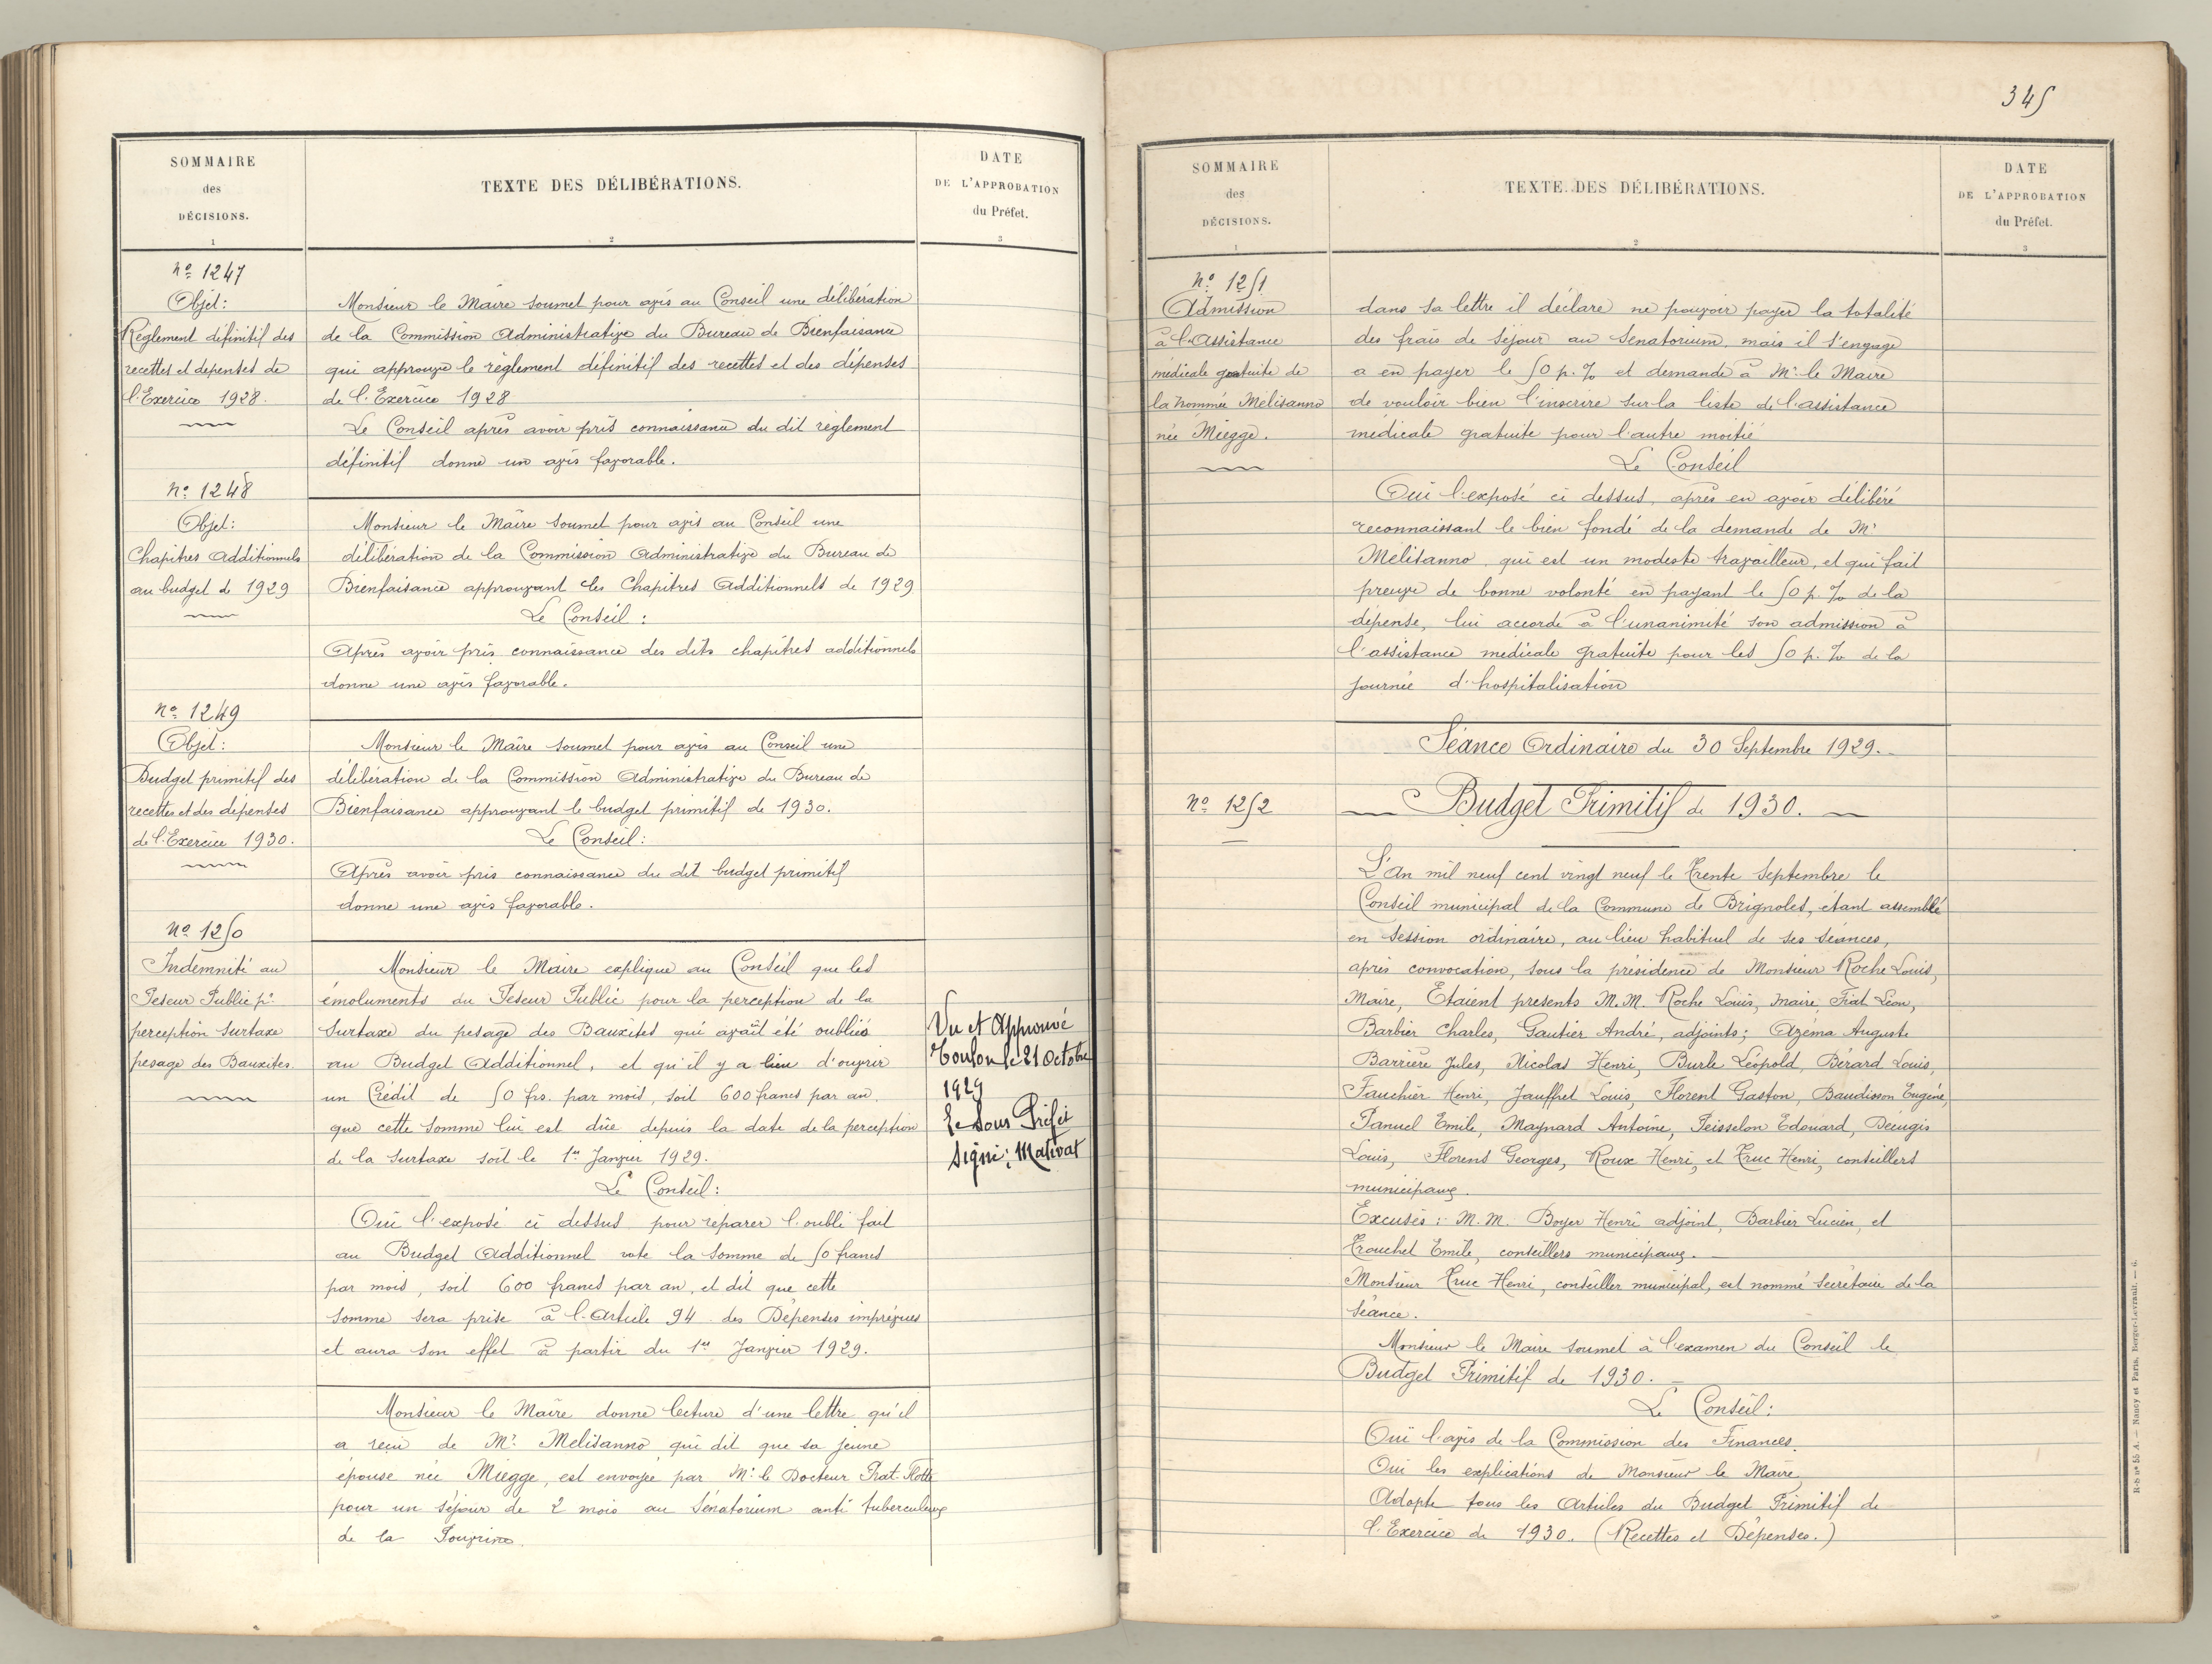 SOMMAIRE
des
DÉCISIONS.
1
TEXTE DES DÉLIBÉRATIONS.
2
DATE
DE L'APPROBATION
du Préfet.
3
No 1247
Objet:
Règlement définitif des
recettes et dépenses de
l'Exercice 1928.
Monsieur le Maire soumet pour avis au Conseil une délibération
de la Commission Administrative du Bureau de Bienfaisance
qui approuve le règlement définitif des recettes et des dépenses
de l'Exercice 1928
Le Conseil après avoir pris connaissance du dit règlement
définitif donne un avis favorable.
No 1248
Objet:
Chapitres Additionnels
au budget de 1929
Monsieur le Maire soumet pour avis au Conseil une
délibération de la Commission Administrative du Bureau de
Bienfaisance approuvant les Chapitres Additionnels de 1929
Le Conseil:
Après avoir pris connaissance des dits chapitres additionnels
donne une avis favorable.
No 1249
Objet:
Budget primitif des
recettes et des dépenses
de l'Exercice 1930.
Monsieur le Maire soumet pour avis au Conseil une
délibération de la Commission Administrative du Bureau de
Bienfaisance approuvant le budget primitif de 1930.
Le Conseil:
Après avoir pris connaissance du dit budget primitif
donne une avis favorable.
No 1250
Indemnité au
Peseur Public pr
perception surtaxe
pesage des Bauxites.
Monsieur le Maire explique au Conseil que les
émoluments du Peseur Public pour la perception de la
Surtaxe du pesage des Bauxites qui avait été oubliée
au Budget Additionnel, et qu'il y a lieu d'ouvrir
un Crédit de 50 frs. par mois, soit 600 francs par an.
que cette somme lui est dûe depuis la date de la perception
de la Surtaxe soit le 1er Janvier 1929.
Le Conseil:
Oui l'exposé ci dessus pour réparer l'oubli fait
au Budget Additionnel vote la somme de 50 francs
par mois, soit 600 francs par an, et dit que cette
somme sera prise à l'Article 94 des Dépenses imprévues
et aura son effet à partir du 1er Janvier 1929.
Vu et Approuvé
Toulon le 21 Octobre
1929
Le Sous Préfet
Signé: Mativat
Monsieur le Maire donne lecture d'une lettre qu'il
a reçu de Mr. Melisanno qui dit que sa jeune
épouse née Miegge, est envoyée par Mr. le Docteur Prat-Flotte
pour un séjour de 2 mois au Sénatorium anti tuberculeux
de la
345
SOMMAIRE
des
DÉCISIONS.
1
TEXTE DES DÉLIBÉRATIONS.
2
DATE
DE L'APPROBATION
du Préfet.
3
No 1251
Admission
à l'Assistance
médicale gratuite de
la nommée Melisanno
née Miegge.
dans sa lettre il déclare ne pouvoir payer la totalité
des frais de séjour au Senatorium. mais il s'engage
a en payer le 50 p. % et demande à Mr. le Maire
de vouloir bien l'inscrire sur la liste de l'assistance
médicale gratuite pour l'autre moitié
Le Conseil
Oui l'exposé ci dessus, après en avoir délibéré
reconnaissant le bien fondé de la demande de Mr
Mélisanno qui est un modeste travailleur, et qui fait
preuve de bonne volonté en payant le 50 p. % de la
dépense, lui accorde à l'unanimité son admission à
l'assistance médicale gratuite pour les 50 p. % de la
journée d'hospitalisation
Séance Ordinaire du 30 Septembre 1929.
No 1252
Budget Primitif de 1930.
L'An mil neuf cent vingt neuf le trente Septembre le
Conseil municipal de la Commune de Brignoles, étant assemblé
en session ordinaire, au lieu habituel de ses séances,
après convocation, sous la présidence de Monsieur Roche Louis,
Maire, Étaient présents M.M. Roche Louis, maire, Fiat Léon,
Barbier Charles, Gautier André, adjoints; Azéma Auguste
Barrière Jules, Nicolas Henri, Burle Léopold, Bérard Louis,
Fauchier Henri, Jauffret Louis, Florent Gaston, Baudisson Eugène,
Panuel Emile, Maynard Antoine, Peisselon Edouard, Deúgis
Louis, Florens Georges, Roux Henri, et Truc Henri, conseillers
municipaux.
Excusés: M.M. Boyer Henri adjoint, Barbier Lucien, et
Trouchet Emile, conseillers municipaux.
Monsieur Truc Henri, conseiller municipal, est nommé Secrétaire de la
Séance.
Monsieur le Maire soumet à l'examen du Conseil le
Budget Primitif de 1930.
Le Conseil:
Oui l'avis de la Commission des Finances.
Oui les explications de Monsieur le Maire
Adopte tous les Articles du Budget Primitif de
l'Exercice de 1930. (Recettes et Dépenses.)
R-S no 55 A. — Nancy et Paris, Berger-Levrault. — 6.